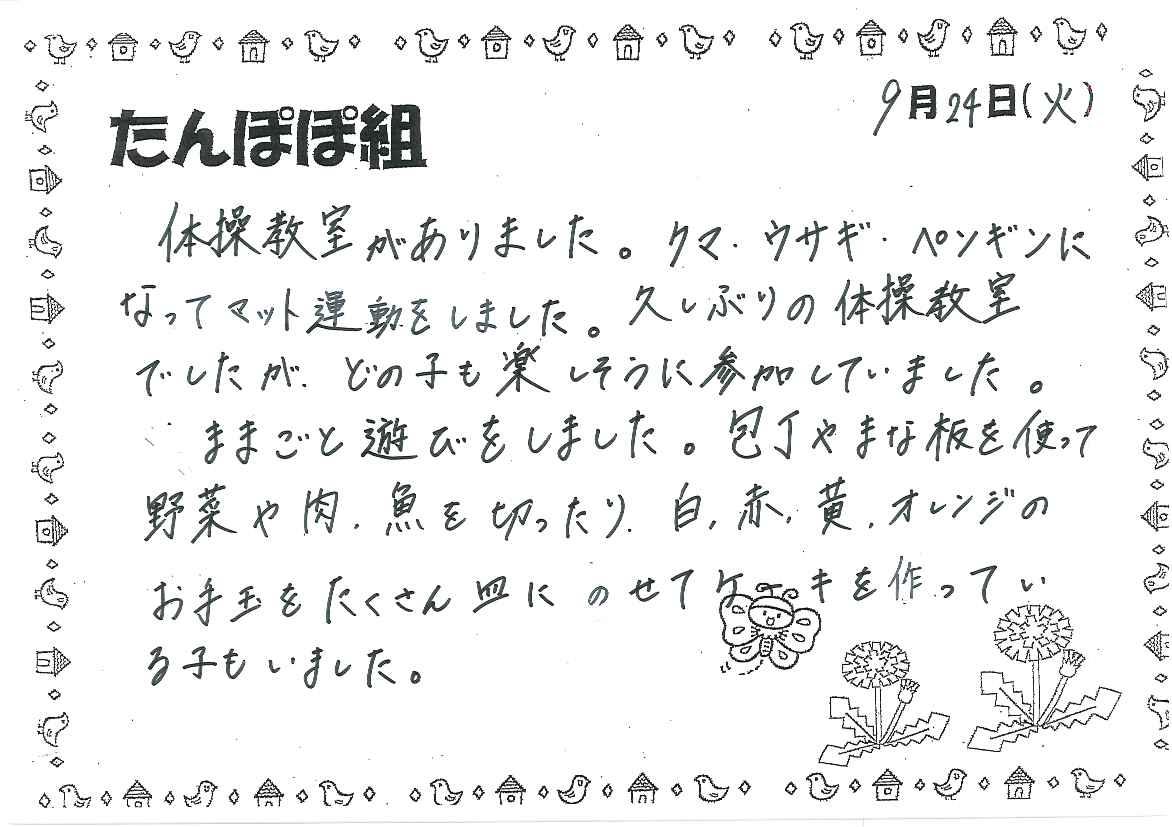 9月24日(火)
たんぽぽ組
体操教室がありました。クマ・ウサギ・ペンギンに
なってマット運動をしました。久しぶりの体操教室
でしたが、どの子も楽しそうに参加していました。
ままごと遊びをしました。包丁やまな板を使って
野菜や肉、魚を切ったり、白、赤、黄、オレンジの
お手玉をたくさん皿にのせてケーキを作ってい
る子もいました。